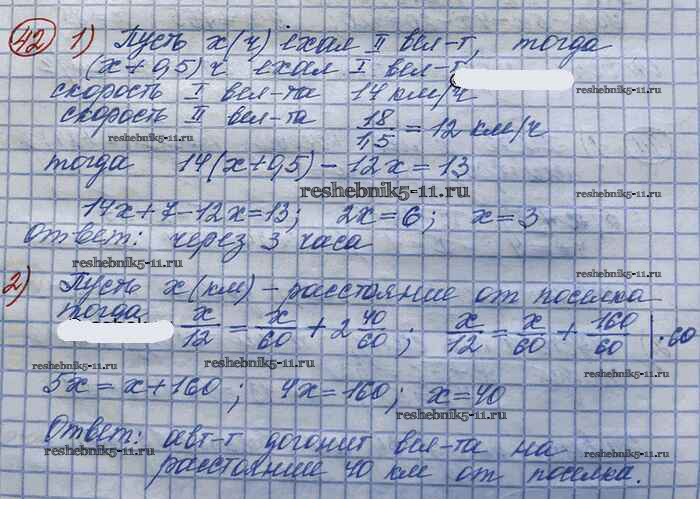 42 1) Пусть x(ч) ехал II вел-т, тогда
(x+0,5) ч ехал I вел-т
скорость I вел-та 14 км/ч
reshebnik5-11.ru
скорость II вел-та 18/1,5 = 12 км/ч
reshebnik5-11.ru
тогда 14(x+0,5) - 12x = 13
reshebnik5-11.ru
reshebnik5-11.ru
14x+7-12x=13; 2x=6; x=3
Ответ: через 3 часа
reshebnik5-11.ru
reshebnik5-11.ru
2) Пусть x(км) - расстояние от поселка
тогда x/12 = x/60 + 2 40/60; x/12 = x/60 + 160/60 |·60
reshebnik5-11.ru
reshebnik5-11.ru
5x = x+160; 4x=160; x=40
reshebnik5-11.ru
Ответ: авт-т догонит вел-та на
reshebnik5-11.ru
reshebnik5-11.ru
расстоянии 40 км от поселка.